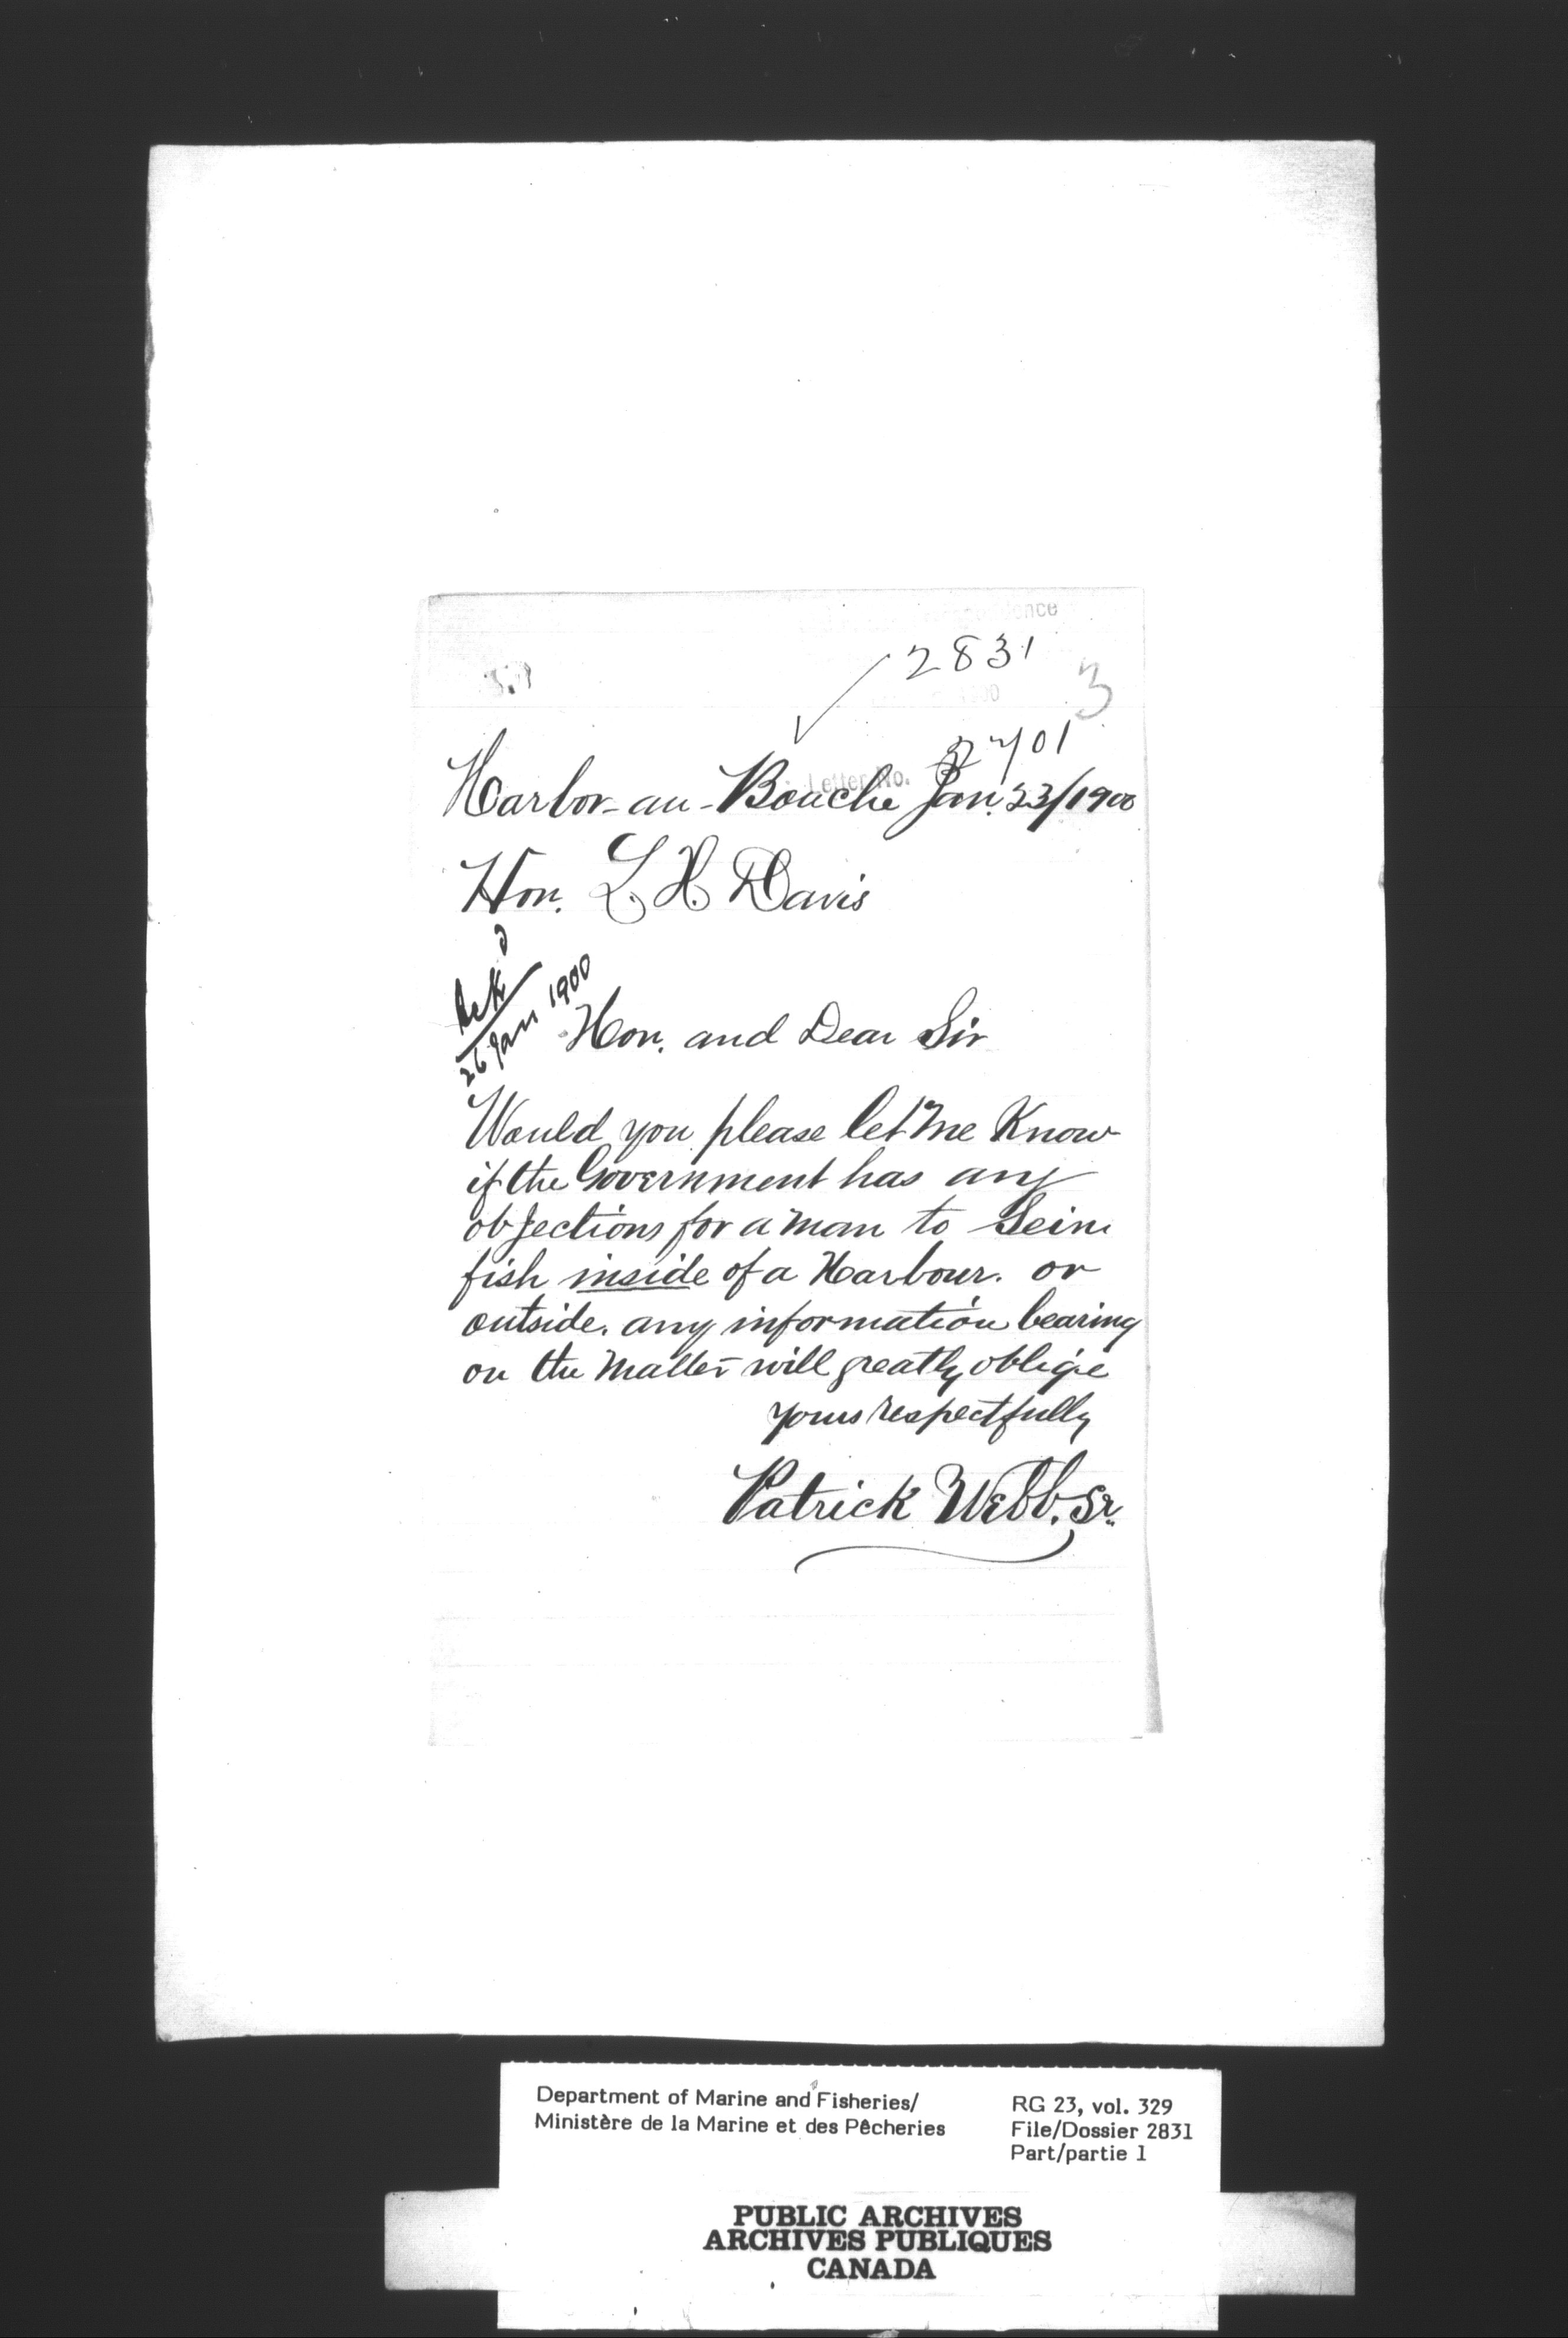 2831
3
2701
Letter No.
Harbor-au-Bouche Jan. 23/1900
Hon. L. H. Davis
Ackd
26 Jan 1900
Hon. and Dear Sir
Would you please let me Know
if the Government has any
objections for a man to Seine
fish inside of a Harbour. or
outside. any information bearing
on the Matter will greatly oblige
yours respectfully
Patrick Webb. Sr.
Department of Marine and Fisheries/
Ministère de la Marine et des Pêcheries
RG 23, vol. 329
File/Dossier 2831
Part/partie 1
PUBLIC ARCHIVES
ARCHIVES PUBLIQUES
CANADA